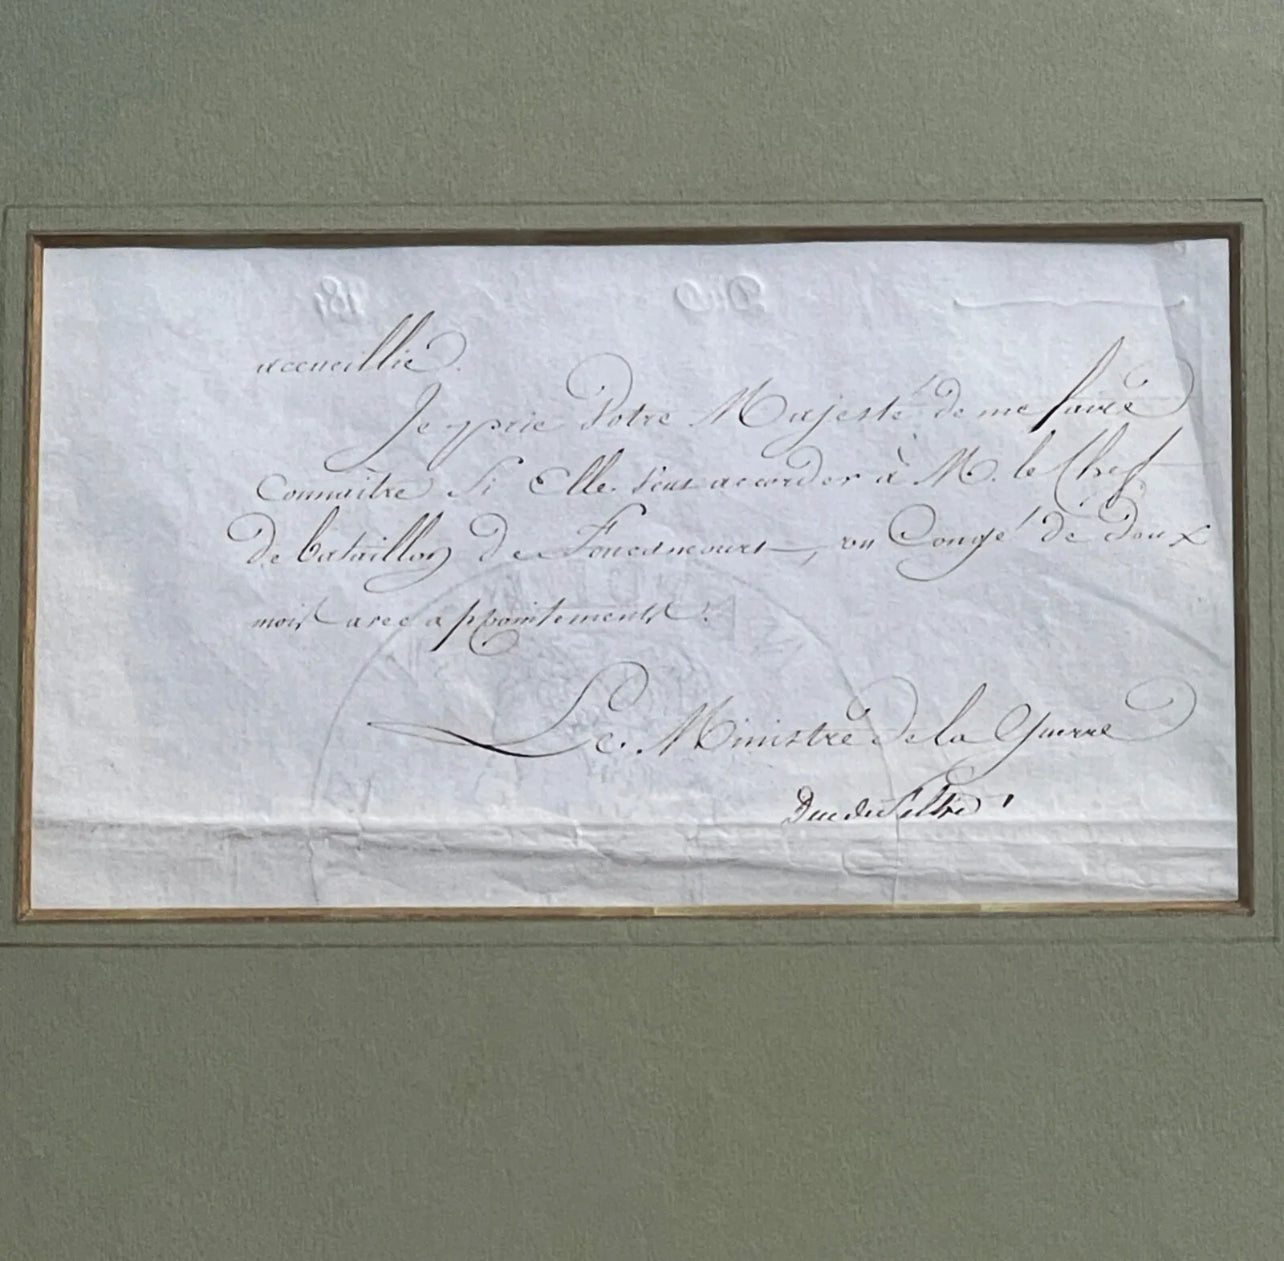 accueillie.
Je prie Votre Majesté de me faire
Connaître Si Elle veut accorder à M. le Chef
De bataillon de, un Congé de deux
mois avec appointements.
Le Ministre de la Guerre
Duc de Feltre